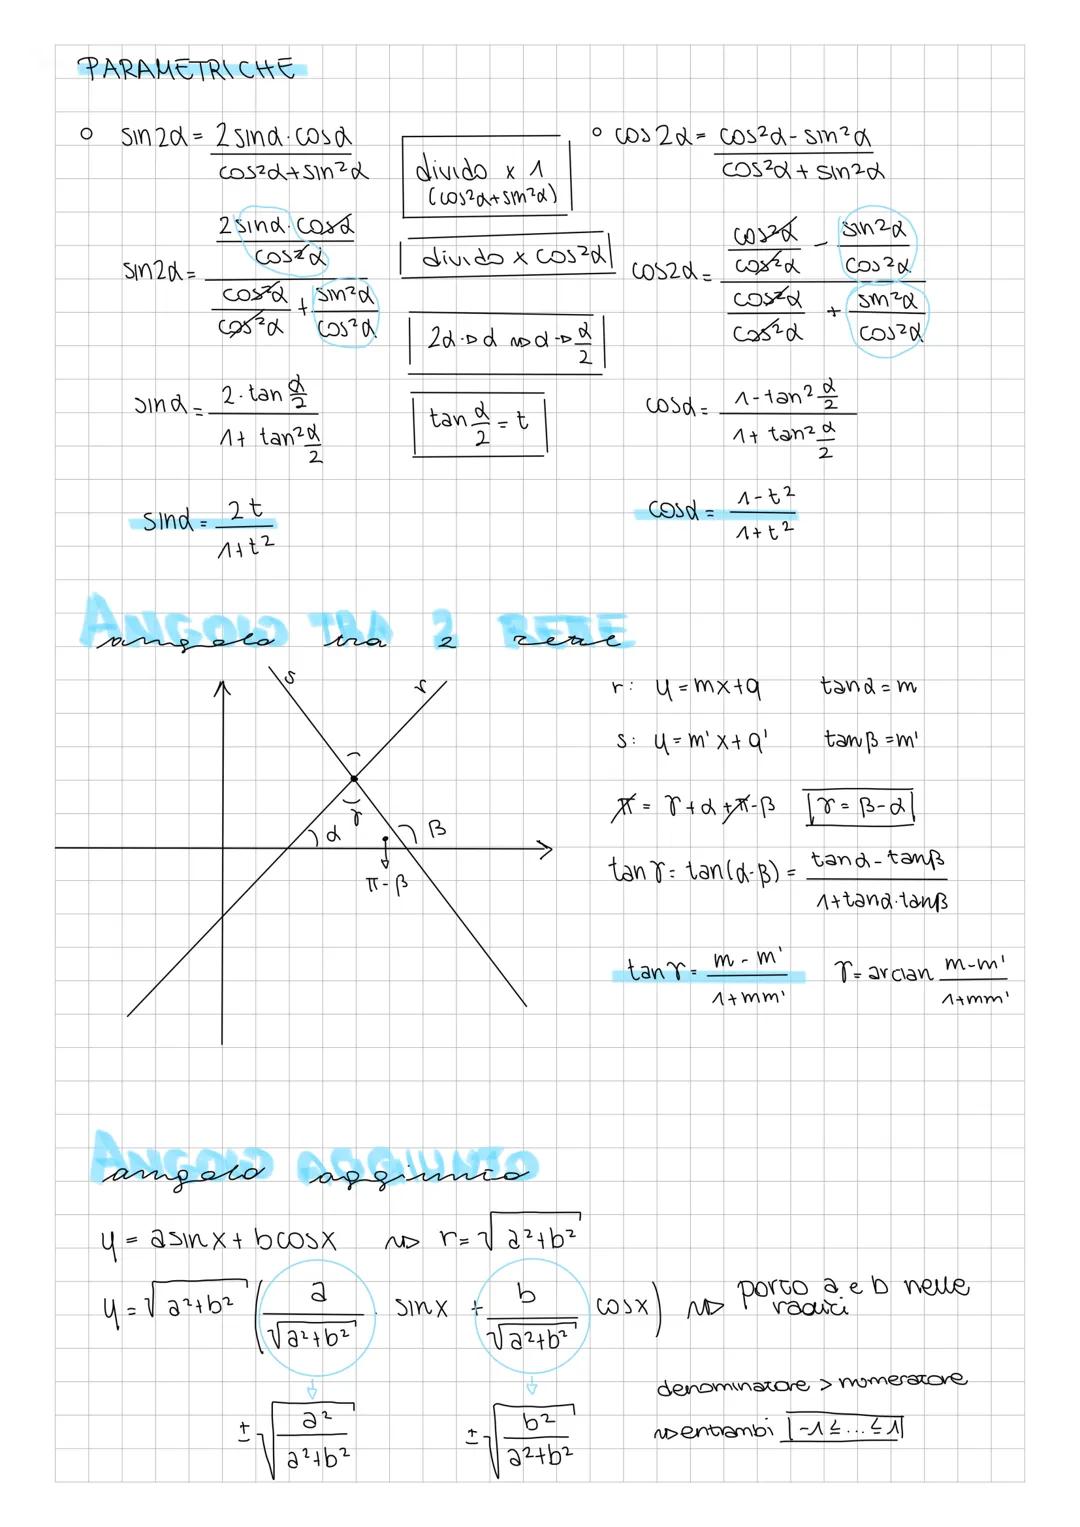 PARAMETRICHE
° sin2α = 2sinα·cosα / cos²α+sin²α
divido x 1
(cos²α+sin²α)
° cos2α = cos²α-sin²α / cos²α+sin²α
sin2α = (2sinα·cosα / cos²α) / (cos²α/cos²α + sin²α/cos²α)
divido x cos²α
cos2α = (cos²α/cos²α - sin²α/cos²α) / (cos²α/cos²α + sin²α/cos²α)
2α→α ⇝ α→α/2
sinα = 2·tan α/2 / 1+tan² α/2
tan α/2 = t
cosα = 1-tan² α/2 / 1+tan² α/2
sinα = 2t / 1+t²
cosα = 1-t² / 1+t²
ANGOLO TRA 2 RETTE
angolo tra 2 rette
s
r
γ
α
β
π-β
r: y=mx+q tanα=m
s: y=m'x+q' tanβ=m'
π = γ+α+π-β γ=β-α
tanγ= tan(α-β) = tanα-tanβ / 1+tanα·tanβ
tanγ= m-m' / 1+mm' γ=arctan m-m' / 1+mm'
ANGOLO AGGIUNTO
angolo aggiunto
y = asinx + bcosx ⇝ r=√a²+b²
y=√a²+b² (a/√a²+b² · sinx + b/√a²+b² cosx) ⇝ porto a e b nelle
radici
denominatore > numeratore
± √a²/a²+b² ± √b²/a²+b² ⇝ entrambi -1≤...≤1